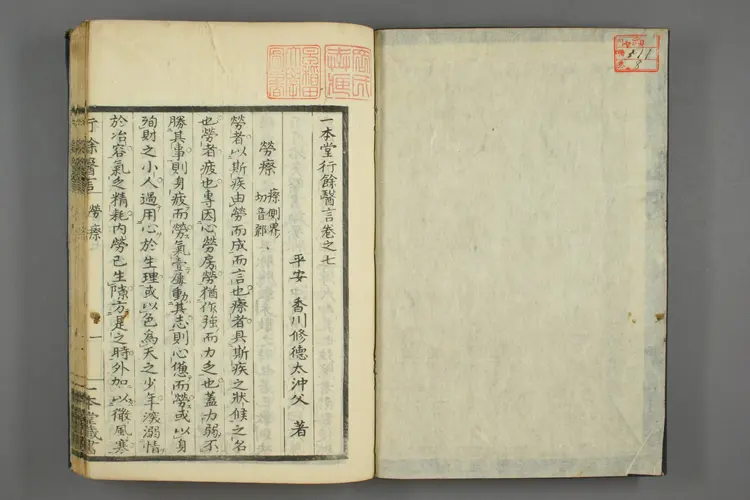 一本堂行餘醫言卷之七
平安 香川修德太沖父 著
勞瘵 瘵側界切音郟
勞者以斯疾由勞而成而言也瘵者具斯疾之狀候之名
也勞者疲也專因心勞房勞猶作強而力乏也蓋力弱不
勝其事則身疲而勞氣壹屢動其志則心憊而勞或以身
殉財之小人過用心於生理或以色爲天之少年深溺情
於冶容氣乏精耗内勞已生隙方是之時外加以微風寒
行餘醫言 勞瘵 一 一本堂藏